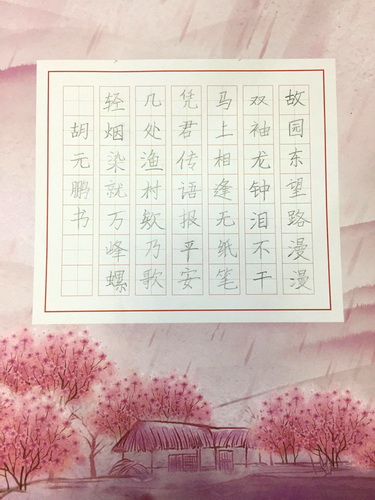 故园东望路漫漫
双袖龙钟泪不干
马上相逢无纸笔
凭君传语报平安
几处渔村欸乃歌
轻烟染就万峰螺
胡元鹏书